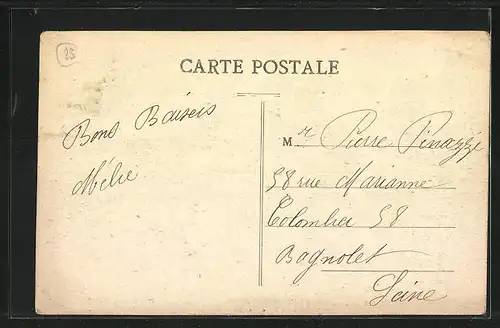 23
CARTE POSTALE
Bons Baisers
Mélie
M r Pierre Pinazzi
58 rue Marianne
Colombier 58
Bagnolet
Seine